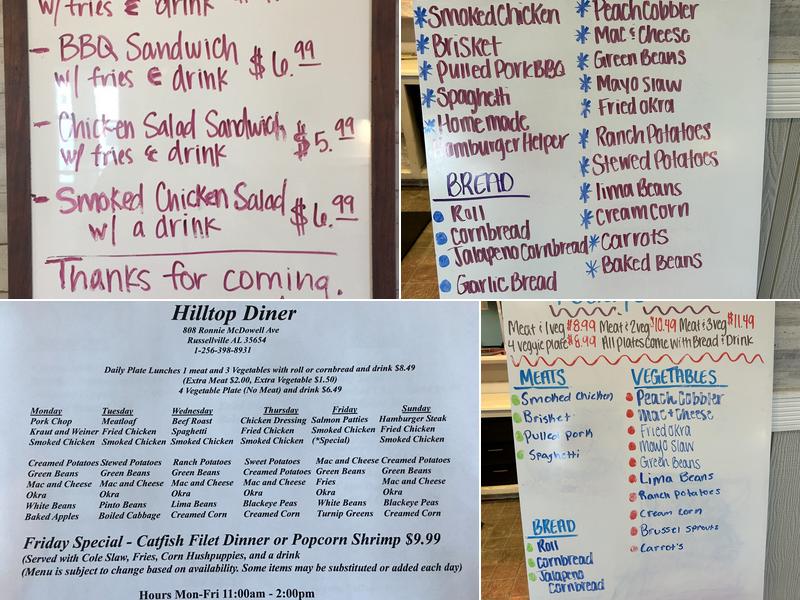 w/ fries & drink
- BBQ Sandwich $6.99
w/ fries & drink
- Chicken Salad Sandwich $5.99
w/ fries & drink
- Smoked Chicken Salad $6.99
w/ a drink
Thanks for coming.
* Smoked Chicken
* Brisket
* Pulled Pork BBQ
* Spaghetti
* Homemade
Hamburger Helper
BREAD
Roll
Cornbread
Jalapeno Cornbread
Garlic Bread
* Peach Cobbler
* Mac & Cheese
* Green Beans
* Mayo Slaw
* Fried Okra
* Ranch Potatoes
* Stewed Potatoes
* Lima Beans
* Cream Corn
* Carrots
* Baked Beans
Hilltop Diner
808 Ronnie McDowell Ave
Russellville AL 35654
1-256-398-8931
Daily Plate Lunches 1 meat and 3 Vegetables with roll or cornbread and drink $8.49
(Extra Meat $2.00, Extra Vegetable $1.50)
4 Vegetable Plate (No Meat) and drink $6.49
Monday Tuesday Wednesday Thursday Friday Sunday
Pork Chop Meatloaf Beef Roast Chicken Dressing Salmon Patties Hamburger Steak
Kraut and Weiner Fried Chicken Spaghetti Fried Chicken Smoked Chicken Fried Chicken
Smoked Chicken Smoked Chicken Smoked Chicken Smoked Chicken (*Special) Smoked Chicken
Creamed Potatoes Stewed Potatoes Ranch Potatoes Sweet Potatoes Mac and Cheese Creamed Potatoes
Green Beans Green Beans Green Beans Creamed Potatoes Green Beans Green Beans
Mac and Cheese Mac and Cheese Mac and Cheese Mac and Cheese Fries Mac and Cheese
Okra Okra Okra Okra Okra Okra
White Beans Pinto Beans Lima Beans Blackeye Peas White Beans Blackeye Peas
Baked Apples Boiled Cabbage Creamed Corn Creamed Corn Turnip Greens Creamed Corn
Friday Special - Catfish Filet Dinner or Popcorn Shrimp $9.99
(Served with Cole Slaw, Fries, Corn Hushpuppies, and a drink
(Menu is subject to change based on availability. Some items may be substituted or added each day)
Hours Mon-Fri 11:00am - 2:00pm
Meat & 1 veg $8.99 Meat & 2 veg $10.49 Meat & 3 veg $11.49
4 veggie plate $8.99 All Plates come with Bread & Drink
MEATS
Smoked Chicken
Brisket
Pulled Pork
Spaghetti
BREAD
Roll
Cornbread
Jalapeno
Cornbread
VEGETABLES
Peach Cobbler
Mac & Cheese
Fried Okra
Mayo Slaw
Green Beans
Lima Beans
Ranch Potatoes
Cream Corn
Brussel Sprouts
Carrot's